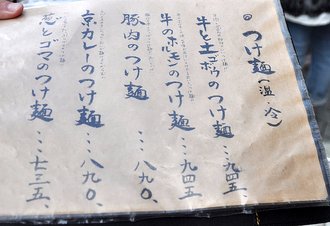 ◎つけ麺(温・冷)
牛と土ゴボウのつけ麺…九四五、
牛のホルモンのつけ麺…九四五、
豚肉のつけ麺…八九〇、
京カレーのつけ麺…八九〇、
葱とゴマのつけ麺…七三五、